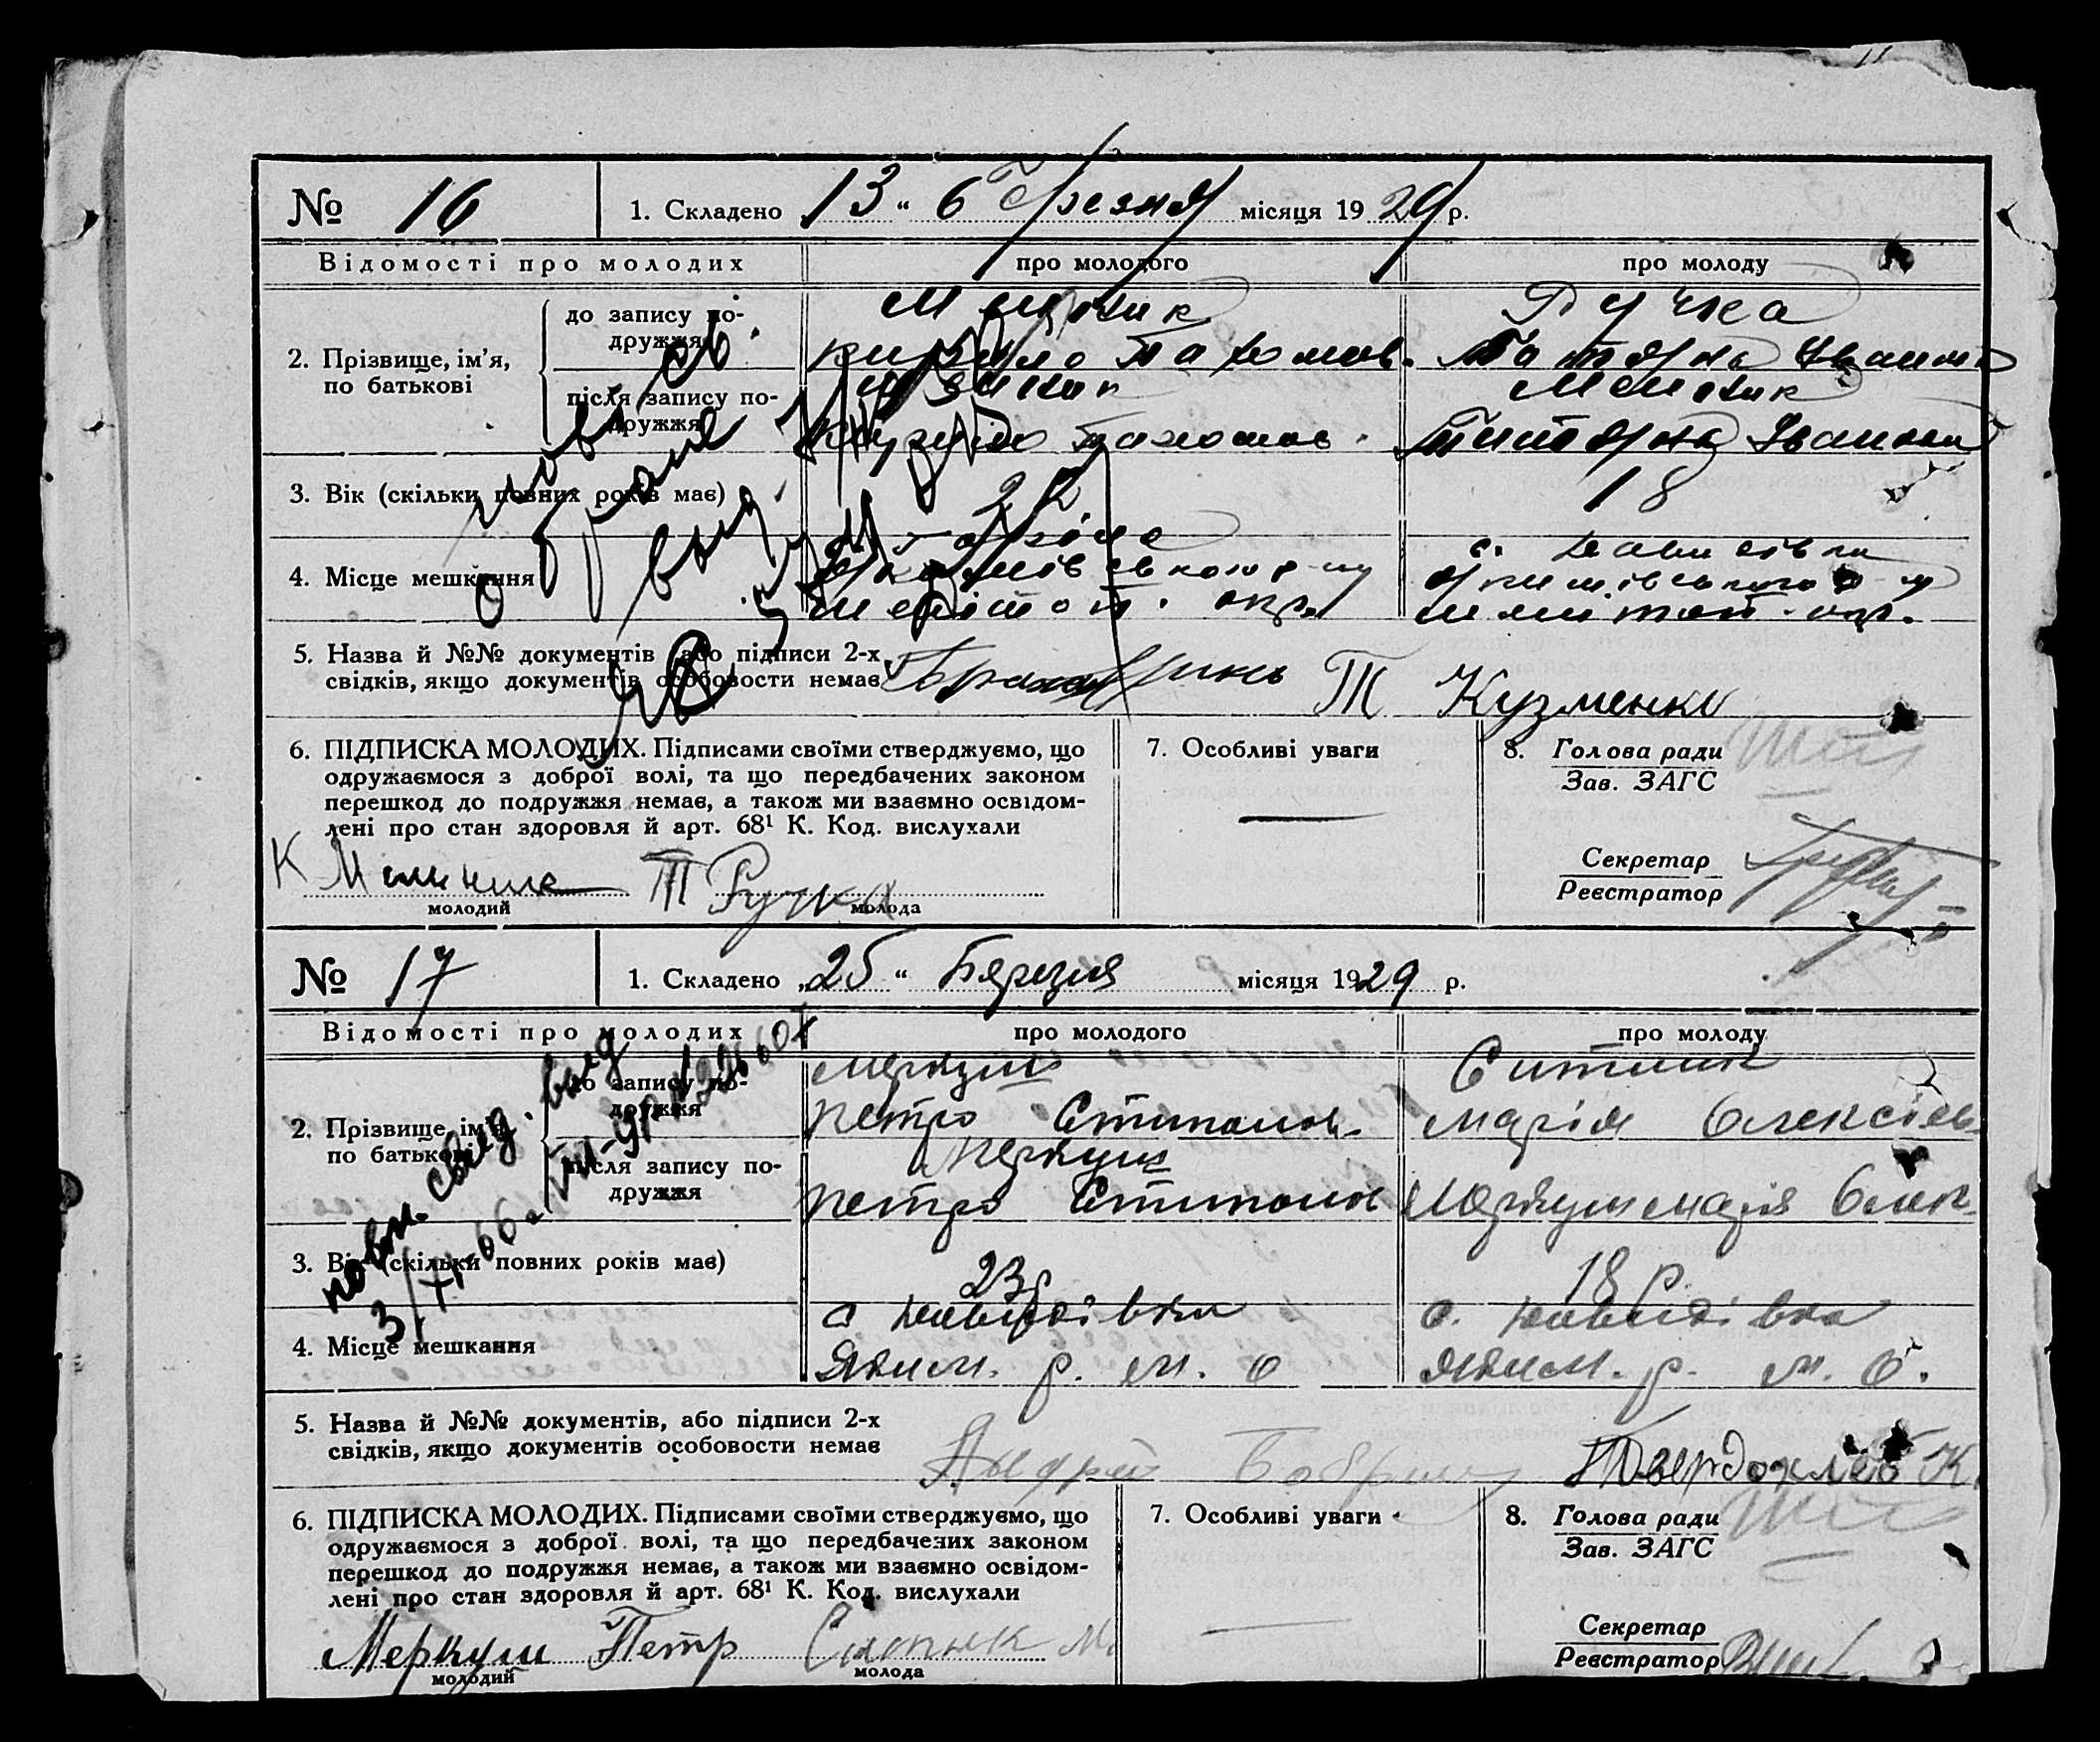 № 16
1. Складено „13“ березня місяця 1929 р.
Відомості про молодих
про молодого
про молоду
2. Прізвище, ім’я, по батькові
до запису по-
дружжя
Кирило Пахомов.
Ручка
Татяна Иванов
після запису по-
дружжя
Пахомов.
Мельник
Татяна Иванов
3. Вік (скільки повних років має)
18
4. Місце мешкання
с. Давидівки
Якимівського р-ну
Меліто п. окр.
5. Назва й №№ документів, або підписи 2-х
свідків, якщо документів особовости немає
Т Кузменко
6. ПІДПИСКА МОЛОДИХ. Підписами своїми стверджуємо, що
одружаємося з доброї волі, та що передбачених законом
перешкод до подружжя немає, а також ми взаємно освідом-
лені про стан здоровля й арт. 68¹ К. Код. вислухали
К Мельник Т Ручка
молодий
молода
7. Особливі уваги
8. Голова ради
Зав. ЗАГС
Секретар
Реєстратор
№ 17
1. Складено „25“ Березня місяця 1929 р.
Відомості про молодих
про молодого
про молоду
2. Прізвище, ім’я,
по батькові
до запису по-
дружжя
Меркуш
Петро Степанов.
Ситник
Марія Олексіев.
після запису по-
дружжя
Меркуш
Петро Степанов
Меркуш Марія Олек.
3. Вік (скільки повних років має)
23 р
18 р.
4. Місце мешкання
с Давидівка
Яким. р. М. О
с. Давидівка
Яким. р. М. О.
5. Назва й №№ документів, або підписи 2-х
свідків, якщо документів особовости немає
Андрій
Твердохлеб К.
6. ПІДПИСКА МОЛОДИХ. Підписами своїми стверджуємо, що
одружаємося з доброї волі, та що передбачених законом
перешкод до подружжя немає, а також ми взаємно освідом-
лені про стан здоровля й арт. 68¹ К. Код. вислухали
Меркуш Петр
молодий
молода
7. Особливі уваги
8. Голова ради
Зав. ЗАГС
Секретар
Реєстратор